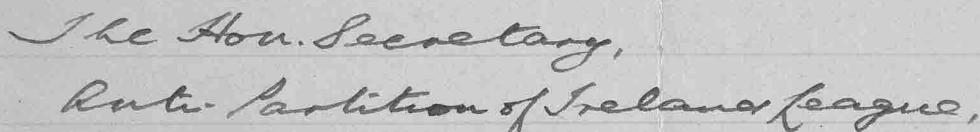 The Hon. Secretary,
Anti-Partition of Ireland League,